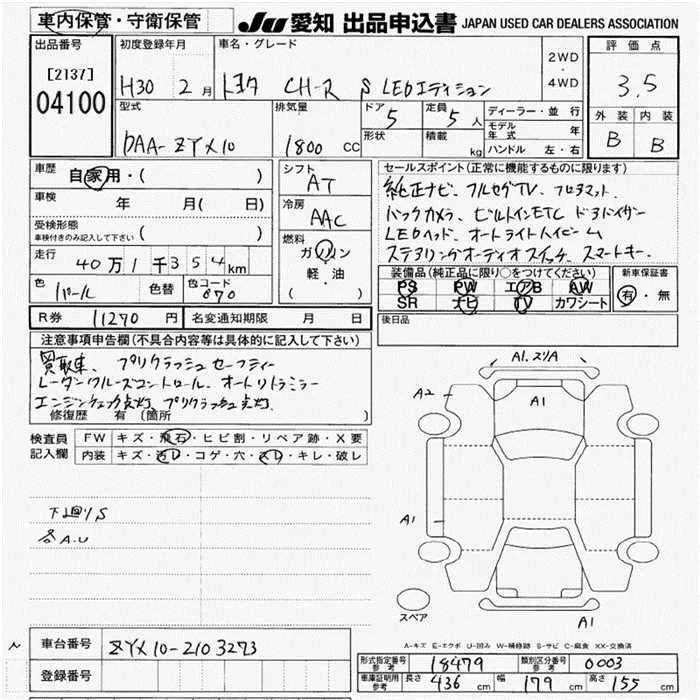 車内保管・守衛保管 JU 愛知 出品申込書 JAPAN USED CAR DEALERS ASSOCIATION
出品番号 初度登録年月 車名・グレード 2WD・4WD 評価点
[2137] H30 2月 トヨタ CH-R S LEDエディション 3.5
04100 型式 排気量 ドア 5 定員 5人 ディーラー・並行 外装 内装
形状 積載 kg モデル年式 年 B B
DAA-ZYX10 1800 CC ハンドル 左・右
車歴 自家用・( ) シフト AT セールスポイント(正常に機能するものに限ります)
車検 年 月( 日) 冷房 AAC 純正ナビ、フルセグTV、フロアマット、
受検形態 バックカメラ、ビルトインETC ドアバイザー
車検付きのみ記入して下さい( ) 燃料 ガソリン・軽・油 ( ) LEDヘッド、オートライトハイビーム
走行 40万1千354km ステアリングオーディオスイッチ、スマートキー、
色 パール 色替 色コード 070 装備品(純正品に限り○をつけてください) 新車保証書
PS PW エアB AW 有・無
SR ナビ TV カワシート
R券 11270円 名変通知期限 月 日 後日品
注意事項申告欄(不具合内容等は具体的に記入して下さい)
買取車、プリクラッシュセーフティー
レーダークルーズコントロール、オートリトラミラー
エンジンチェック点灯、プリクラッシュ点灯、
修復歴 有(箇所 )
検査員記入欄 FW キズ・飛石・ヒビ割・リペア跡・X要
内装 キズ・汚レ・コゲ・穴・スレ・キレ・破レ
A1.スリA
A2
A1
A1
下廻りS
各A.U
スペア
A1
A-キズ E-エクボ U-凹み W-補修跡 S-サビ C-腐食 XX-交換済
車台番号 ZYX10-2103273
登録番号
形式指定番号 参考 18479 類別区分番号 参考 0003
車庫証明用 参考 長さ 436 cm 幅 179 cm 高さ 155 cm